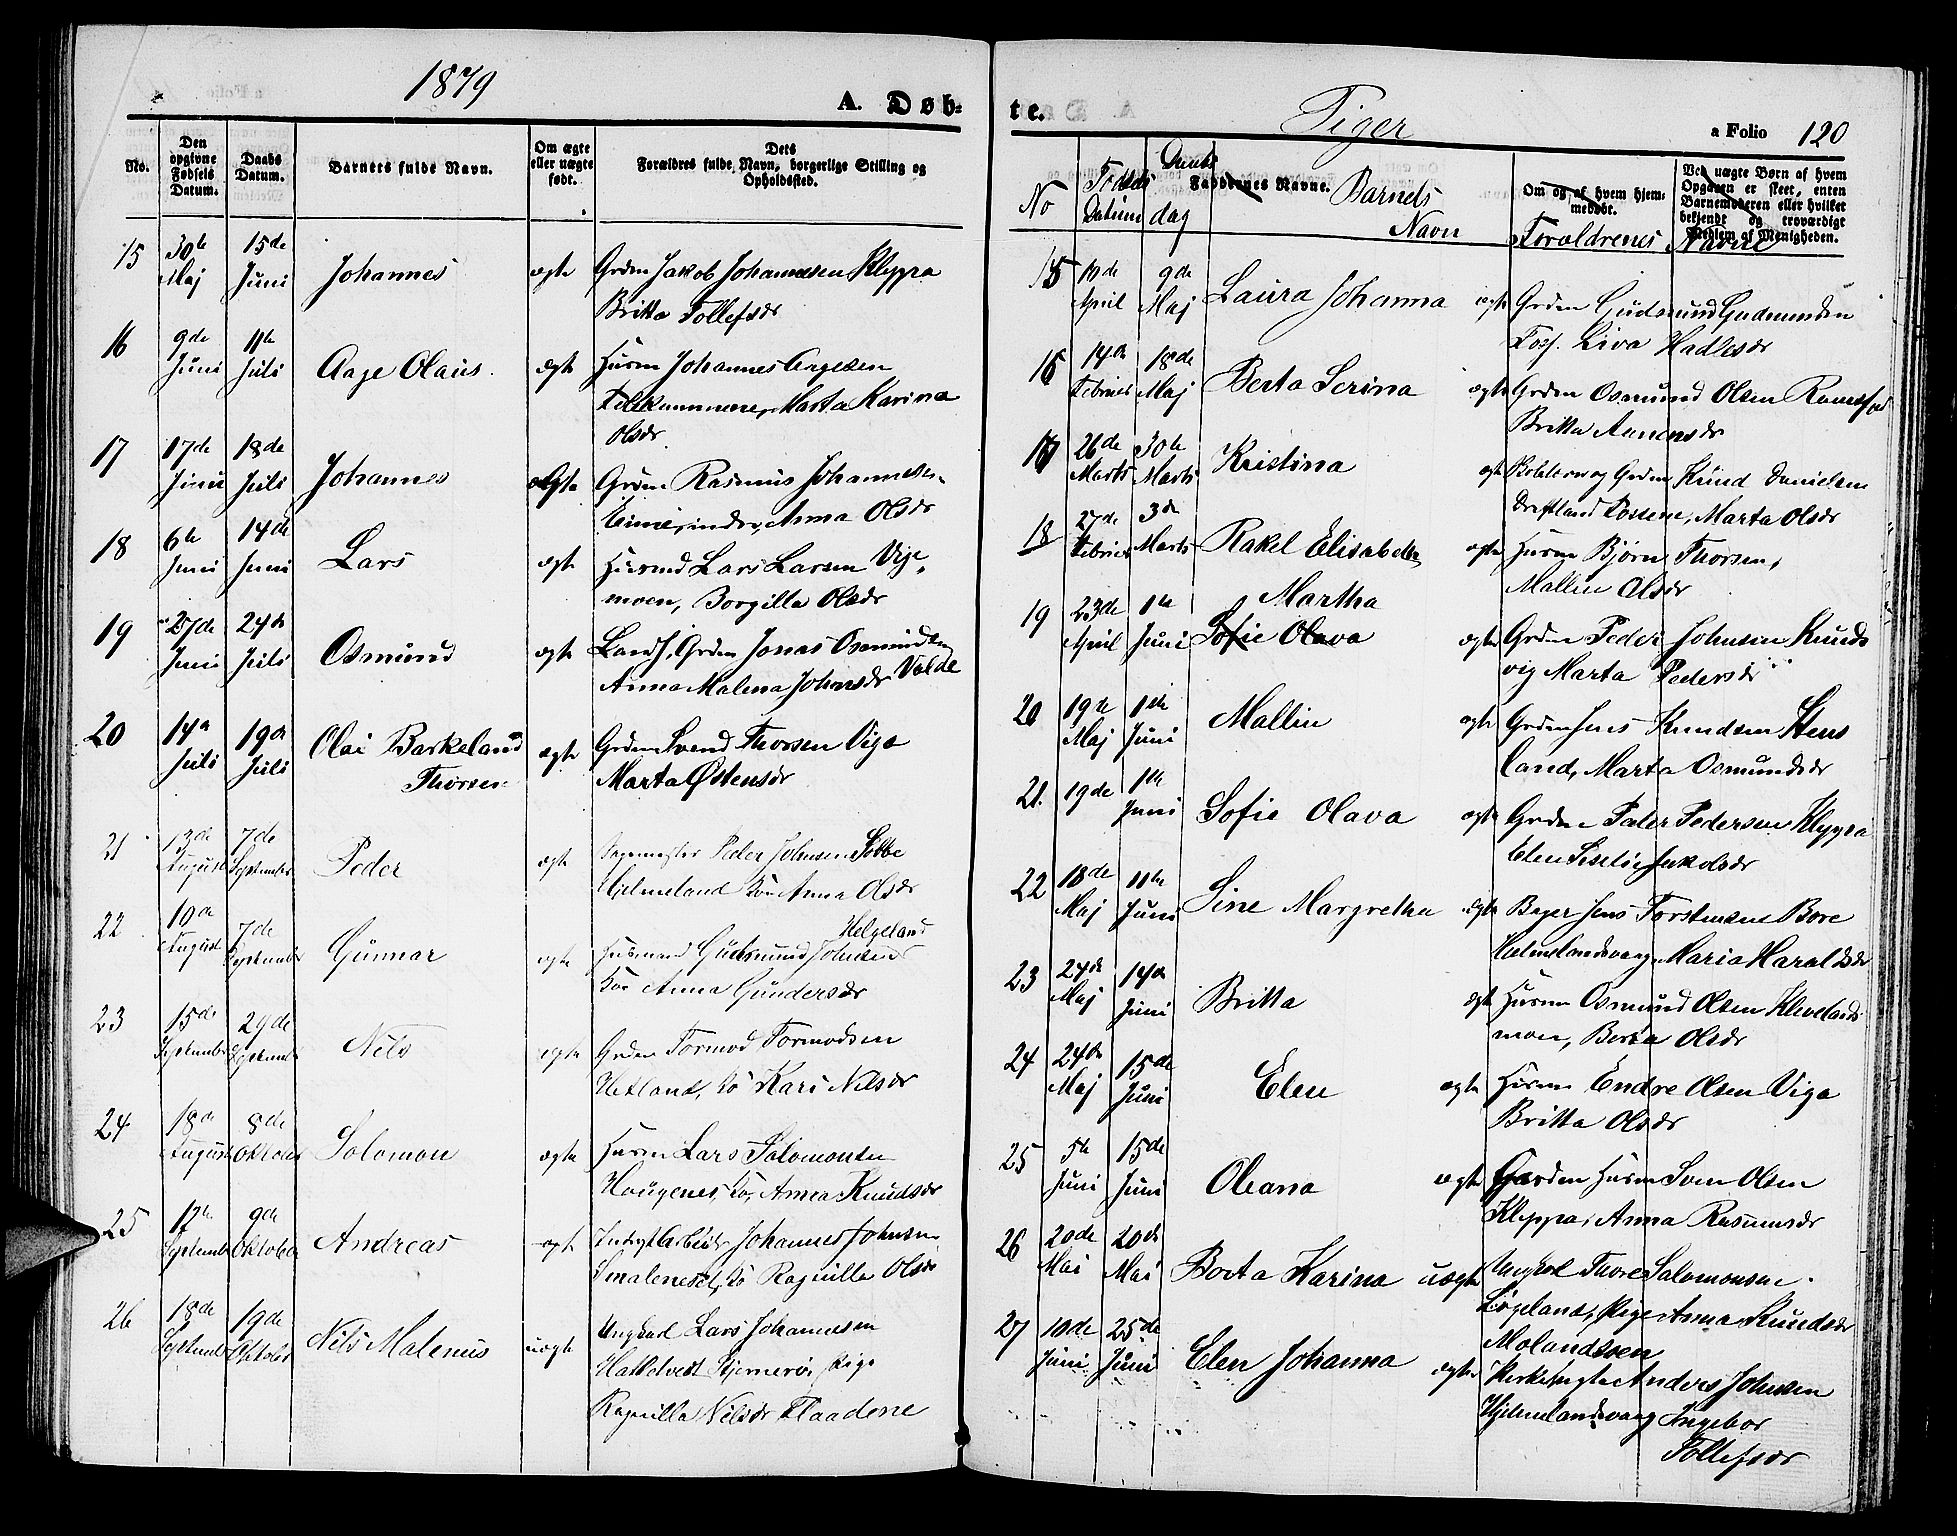 1879
A. Døb-
No.
Den opgivne Fødsels Datum.
Daabs Datum.
Barnets fulde Navn.
Om ægte eller uægte født.
Dets Forældres fulde Navn, borgerlige Stilling og Opholdssted.
15 30te Maj 15de Juni Johannes ægte Grdm Jakob Johannesen Kleppa
Britta Tollefsdr
16 9de Juni 11te Juli Aage Olaus ægte Husm Johannes Aagesen
Marta Karina
Olsdr
17 17de Juni 18de Juli Johannes ægte Grdm Rasmus Johannesen
Anna Olsdr
18 6te Juni 14de Juni Lars ægte Husmd Lars Larsen Vig-
moen, Borgilla Olsdr
19 27de Juni 24de Juli Osmund ægte Grdm Jonas Osmundsen
Anna Malena Johnsdr Valde
20 14de Juli 19de Juli Olai Barkeland ægte Grdm Svend Thorsen Viga
Thorsen Marta Østensdr
21 13de August 7de September Peder ægte Peder Johnsen Sæbbe
Hjelmeland Anna Olsdr
22 10de August 7de September Gunnar ægte Husmand Gudmund Johnsen Helgeland
Anna Gundersdr
23 15de September 29de September Nels ægte Grdm Tormod Tormodsen
Hetland, Kari Nelsdr
24 18de August 8de Oktober Solomon ægte Husm Lars Salomonsen
Hougenes, Anna Knudsdr
25 12te September 9de Oktober Andreas ægte Johannes Johnsen
Ragnilla Olsdr
26 18de September 19de Oktober Nils Malenius uægte Ungkarl Lars Johannesen
Pige
Ragnilla Nelsdr Flaadene
te.
Piger
a Folio 120
No
Fødsels Datum
Daabs dag
Faddernes Navne.
Barnets Navn
Om og af hvem hjemmedøbt.
Ved uægte Børn af hvem Opgaven er skeet, enten Barnemoderen eller hvilket bekjendt og troværdigt Medlem af Menigheden.
Forældrenes Navne
15 10de April 9de Maj Laura Johanna ægte Grdm Gudmund Gudmundsen
Foss. Liva Hadlesdr
16 14de Februar 18de Maj Berta Serina ægte Grdm Osmund Olsen
Britta Amundsdr
17 26de Marts 30te Marts Kristina ægte Grdm Knud Danielsen
Marta Olsdr
18 27de Februar 3de Marts Rakel Elisabeth ægte Husm Bjørn Thorsen,
Mallin Olsdr
19 23de April 1te Juni Martha
Sofie Olava ægte Grdm Peder Johnsen Knuds
vig Marta Pedersdr
20 19de Maj 1te Juni Mallin ægte Grdm Jens Knudsen Stens
land, Marta Osmundsdr
21. 19de 1te Juni Sofie Olava ægte Grdm Peder Pedersen Kleppa
Elen Jakobsdr
22 18de Maj 11te Juni Sine Margretha ægte Jens Torstensen Bore
Hjelmelandsvaag Maria Haraldsdr
23 24de Maj 14de Juni Britta ægte Husm Osmund Olsen Klevelands
moen, Berta Olsdr
24 24de Maj 15de Juni Elen ægte Husm Endre Olsen Viga
Britta Olsdr
25 5te Juni 15de Juni Oleana ægte Husm Sven Olsen
Kleppa, Anna Rasmusdr
26 20de Mai 20de Mai Berta Karina uægte Ungkarl Thore Salomonsen
Pige Anna Knudsdr
Molandsven
27 10de Juni 25de Juni Elen Johanna ægte Anders Johnsen
Hjelmelandsvaag Ingebor
Tollefsdr